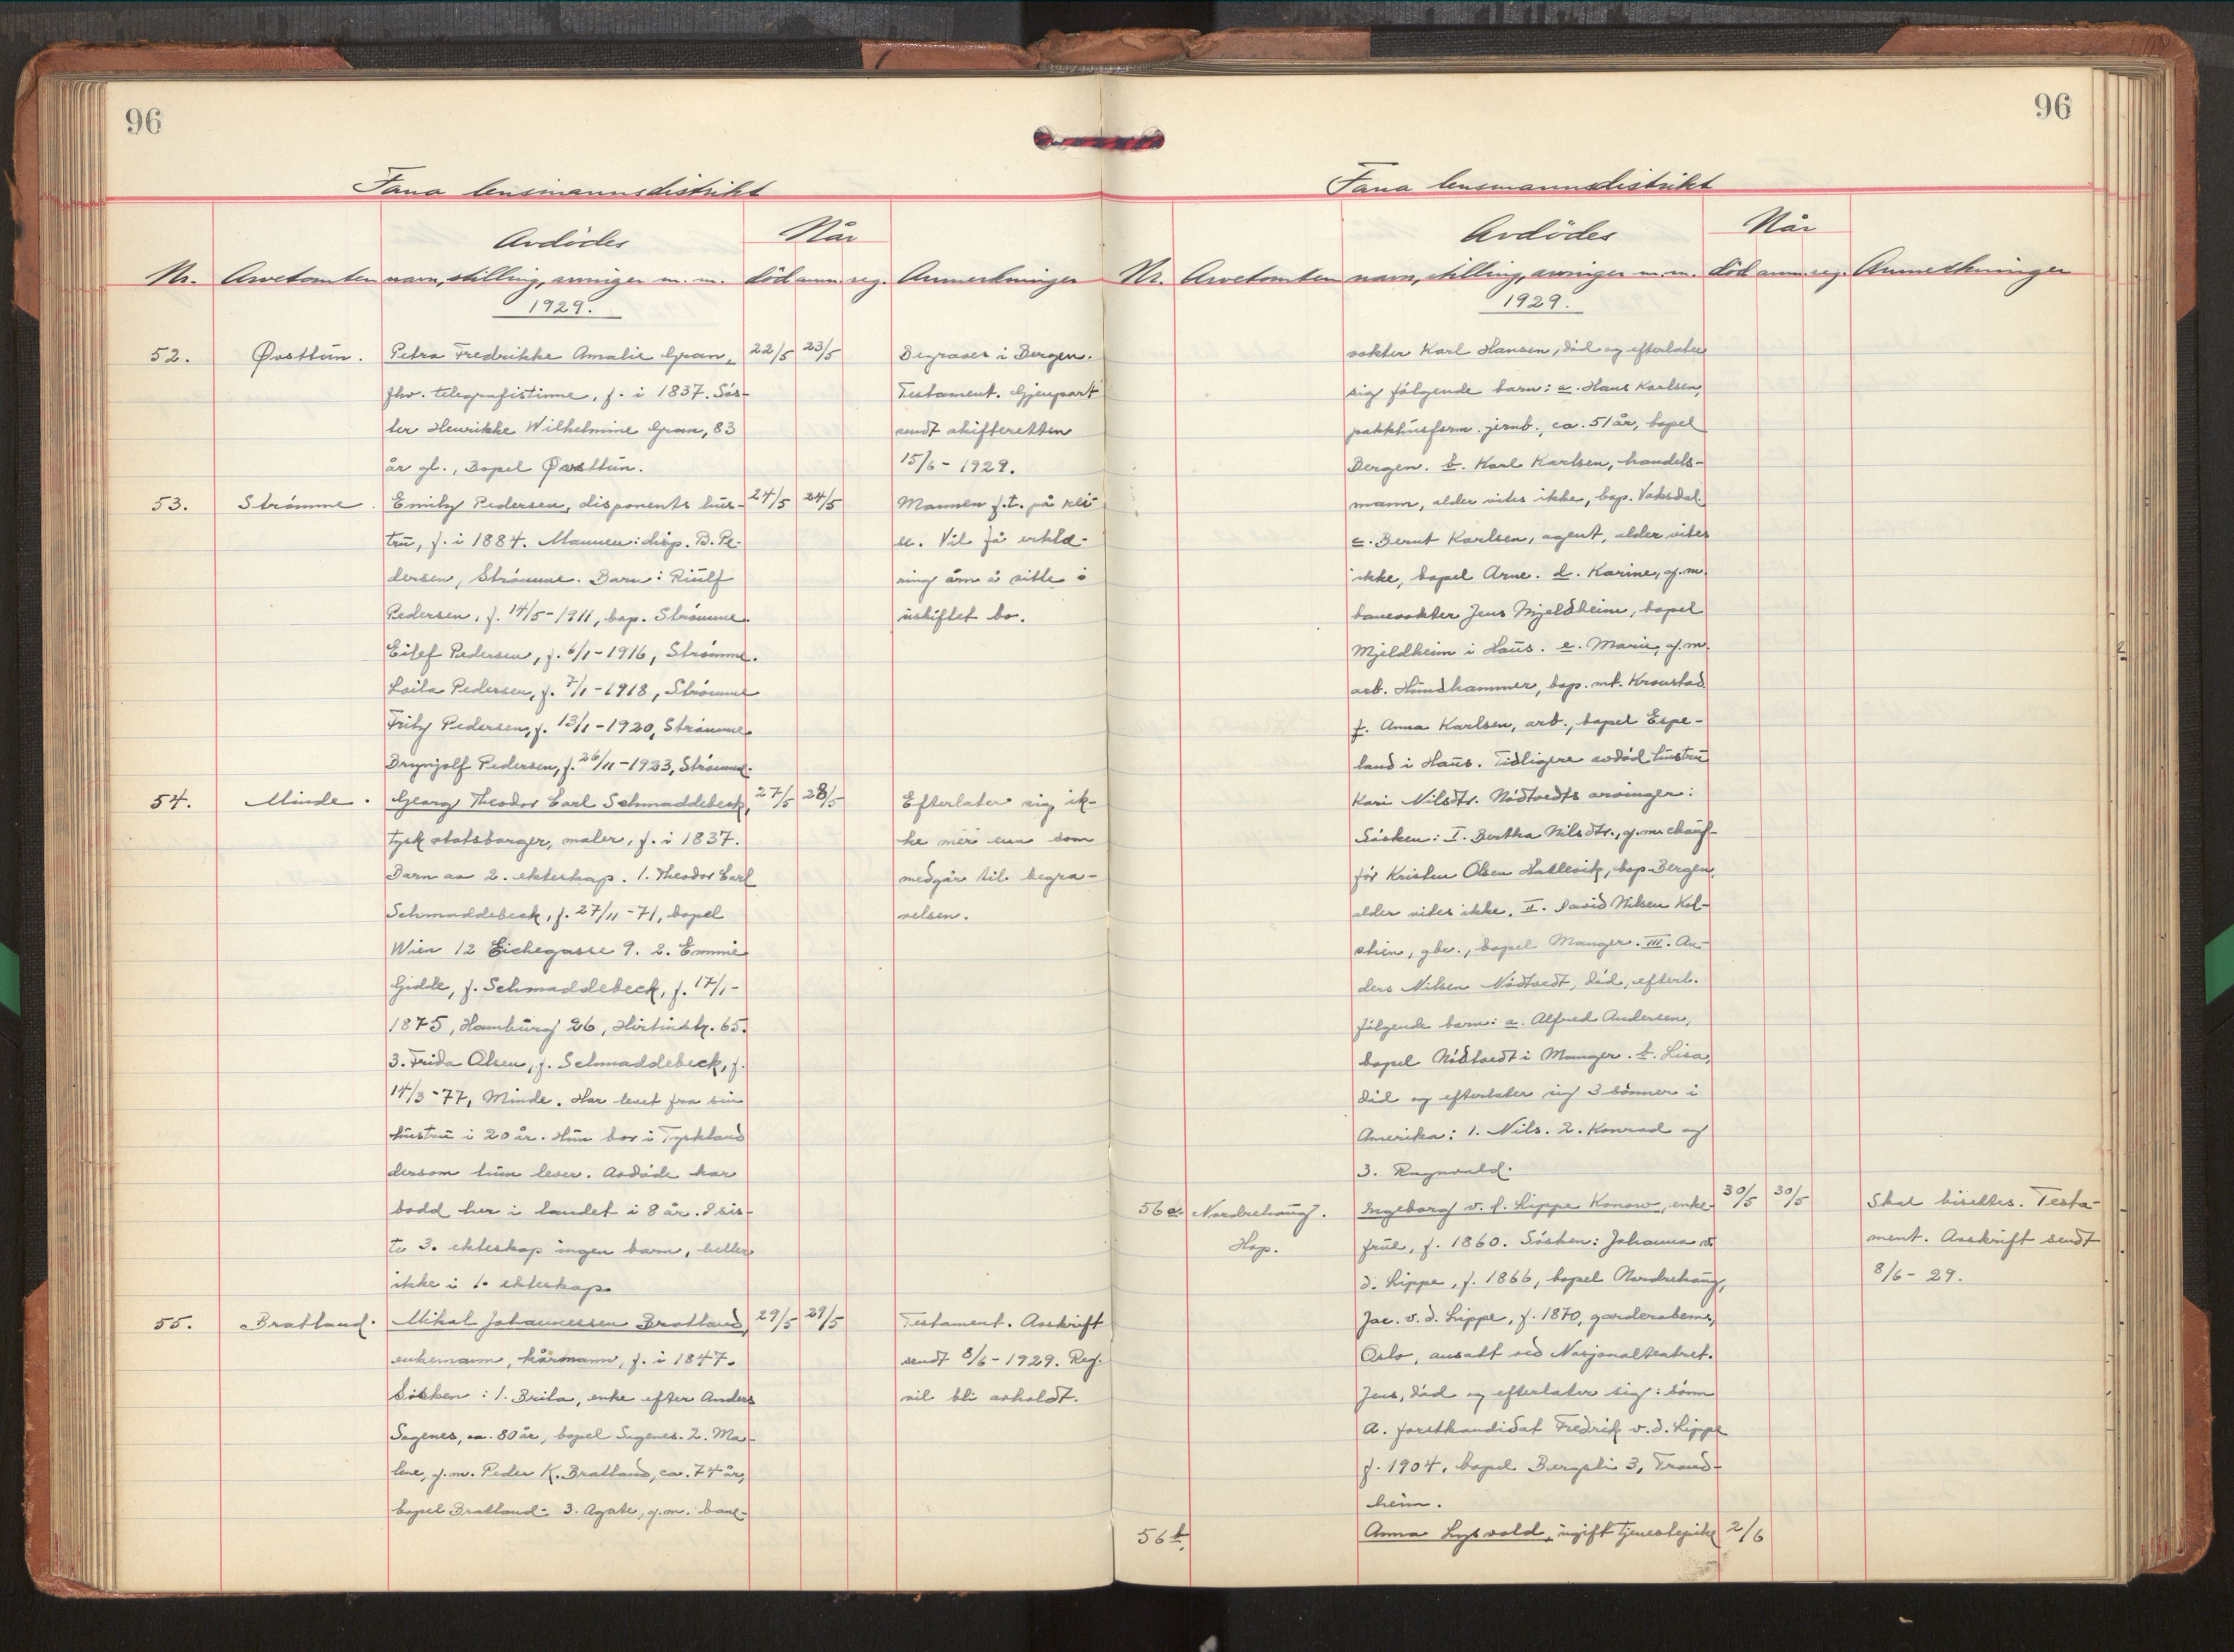 96
Fana lensmannsdistrikt
Avdödes
Når
Nr. Arvetomten navn, stilling, arvinger m. m. död anm. reg. Anmerkninger
1929.
52. Øvsttun. Petra Fredrikke Amalie Gran, 22/5 23/5 Begraves i Bergen.
fhv. telegrafistinne, f. i 1837. Sös- Testament. Gjenpart
ter Henrikke Wilhelmine Gran, 83 sendt skifteretten
år gl., Bopel Øvsttun. 15/6 - 1929.
53. Strömme. Emily Pedersen, disponents hus- 24/5 24/5 Mannen f.t. på rei-
tru, f. i 1884. Mannen: disp. B. Pe- se. Vil få erklæ-
dersen, Strömme. Barn: Riulf ring om å sitte i
Pedersen, f. 14/5 - 1911, bop. Strömme. uskiftet bo.
Eilef Pedersen, f. 6/1 - 1916, Strömme.
Laila Pedersen, f. 7/1 - 1918, Strömme
Fritz Pedersen, f. 13/1 - 1920, Strömme
Brynjolf Pedersen, f. 26/11 - 1923, Strömme.
54. Minde. Georg Theodor Carl Schmaddebeck, 27/5 28/5 Efterlater sig ik-
tysk statsborger, maler, f. i 1837. ke mer enn som
Barn av 2. ekteskap. 1. Theodor Carl medgår til begra-
Schmaddebeck, f. 27/11 - 71, bopel velsen.
Wien 12 Eichegasse 9. 2. Emmie
Gidde, f. Schmaddebeck, f. 17/1 -
1875, Hamburg 26, 65.
3. Frida Olsen, f. Schmaddebeck, f.
14/3 - 77, Minde. Har levet fra sin
hustru i 20 år. Hun bor i Tyskland
dersom hun lever. Avdöde har
bodd her i landet i 8 år. I sis-
te 3. ekteskap ingen barn, heller
ikke i 1. ekteskap.
55. Bratland. Mikal Johannessen Bratland, 29/5 29/5 Testament. Avskrift
enkemann, kårmann, f. i 1847. sendt 8/6 - 1929. Reg.
Sösken: 1. Brita, enke efter Anders vil bli avholdt.
Sagenes, ca. 80 år, bopel Sagenes. 2. Ma-
lene, g.m. Peder K. Bratland, ca. 74 år,
bopel Bratland. 3. Agate, g.m. bane-
96
Fana lensmannsdistrikt
Avdödes
Når
Nr. Arvetomten navn, stilling, arvinger m. m. död anm. reg. Anmerkninger
1929.
vokter Karl Hansen, död og efterlater
sig fölgende barn: a. Hans Karlsen,
pakkhusform. jernb., ca. 51 år, bopel
Bergen. b. Karl Karlsen, handels-
mann, alder vites ikke, bop. Vaksdal.
c. Bernt Karlsen, agent, alder vites
ikke, bopel Arne. d. Karine, g.m.
banevokter Jens Mjeldheim, bopel
Mjeldheim i Haus. e. Marie, g.m.
arb. Hundhammer, bop. Kronstad
f. Anna Karlsen, arb., bopel Espe-
land i Haus. Tidligere avdöd hustru
Kari Nilsdtr. Nödtvedts arvinger:
Sösken: I. Bertha Nilsdtr., g.m. chauf-
för Kristen Olsen Hatlevik, bop. Bergen,
alder vites ikke. II. David Nilsen Kol-
stien, gbr., bopel Manger. III. An-
ders Nilsen Nödtvedt, död, efterl.
fölgende barn: a. Alfred Andersen,
bopel Nödtvedt i Manger. b. Lisa,
död og efterlater sig 3 sönner i
Amerika: 1. Nils. 2. Konrad og
3. Ragnvald.
56a. Nordrehaug. Ingeborg v. d. Lippe Konow, enke- 30/5 30/5 Skal bisettes. Testa-
Hop. frue, f. 1860. Sösken: Johanna v. ment. Avskrift sendt
d. Lippe, f. 1866, bopel Nordrehaug, 8/6 - 29.
Jac. v. d. Lippe, f. 1870, garderobem.,
Oslo, ansatt ved Nasjonalteatret.
Jens, död og efterlater sig: sönn
a. forstkandidat Fredrik v. d. Lippe
f. 1904, bopel Bergsli 3, Trond-
heim.
56b. Anna Lysvold, ugift tjenestepike 2/6